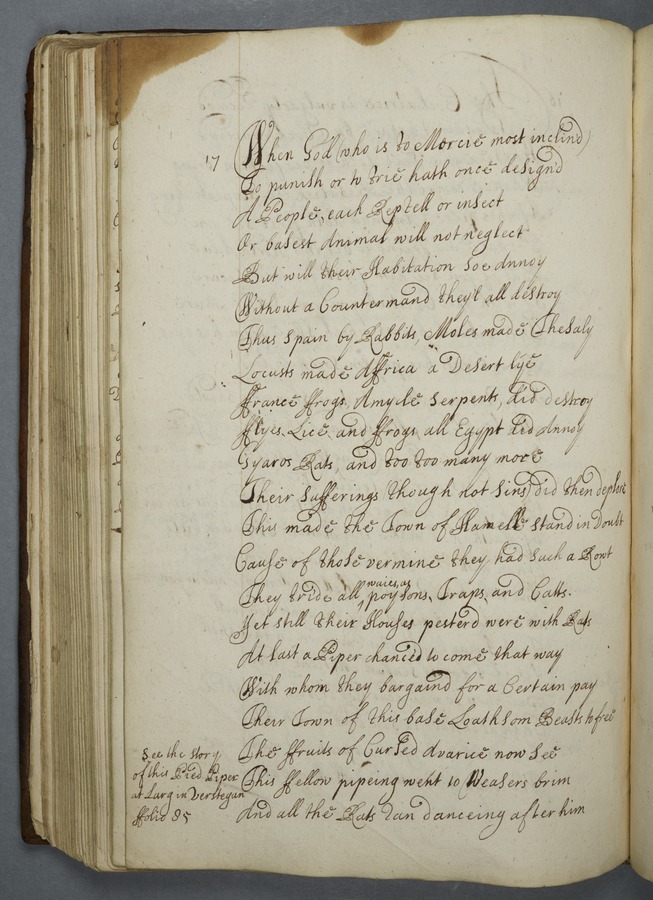 17
When God (who is to Mercie most inclind)
To punish or to trie hath once designd
A People, each Reptell or insect
Or basest Animal will not neglect
But will their Habitation soe Annoy
Without a Countermand they'l all destroy
Thus Spain by Rabbits, Moles made Thesaly
Locusts made Affrica a Desert lye
ffrance ffrogs, Amycle Serpents, did destroy
fflyes, Lice, and ffrogs all Egypt did Annoy
Gyaros Rats, and too too many more
Their Sufferings though not Sins) did then deplore
This made the Town of Hamelle stand in Doubt
Cause of those vermine they had such a Rout
They tride all waies, as poysons, Traps, and Catts.
Yet still their Houses pesterd were with Rats
At last a Piper chanced to come that way
With whom they bargaind for a Certain pay
Their Town of this base Loathsom Beasts to free
The ffruits of Cursed Avarice now see
This ffellow pipeing went to Weasers brim
And all the Rats Ran danceing after him
See the story
of this Pied Piper
at Larg in Verstegan
ffolio 85